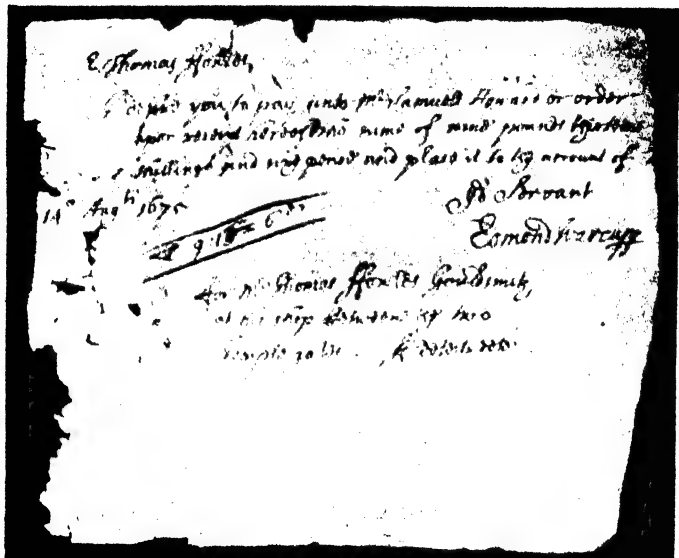 Mr Thomas ffowles,
I pray you to pay unto Mr Samuell Howard or order
upon receipt hereof the sume of nine pounds thirteene
shillings and six pence and place it to the account of
Yr Servant
14th Augti 1675
Edmond Warcupp
£ 9 : 13 : 6
For Mr Thomas ffowles Gouldsmith,
at his shop betweene ye two
temple gates. ffleetestreete